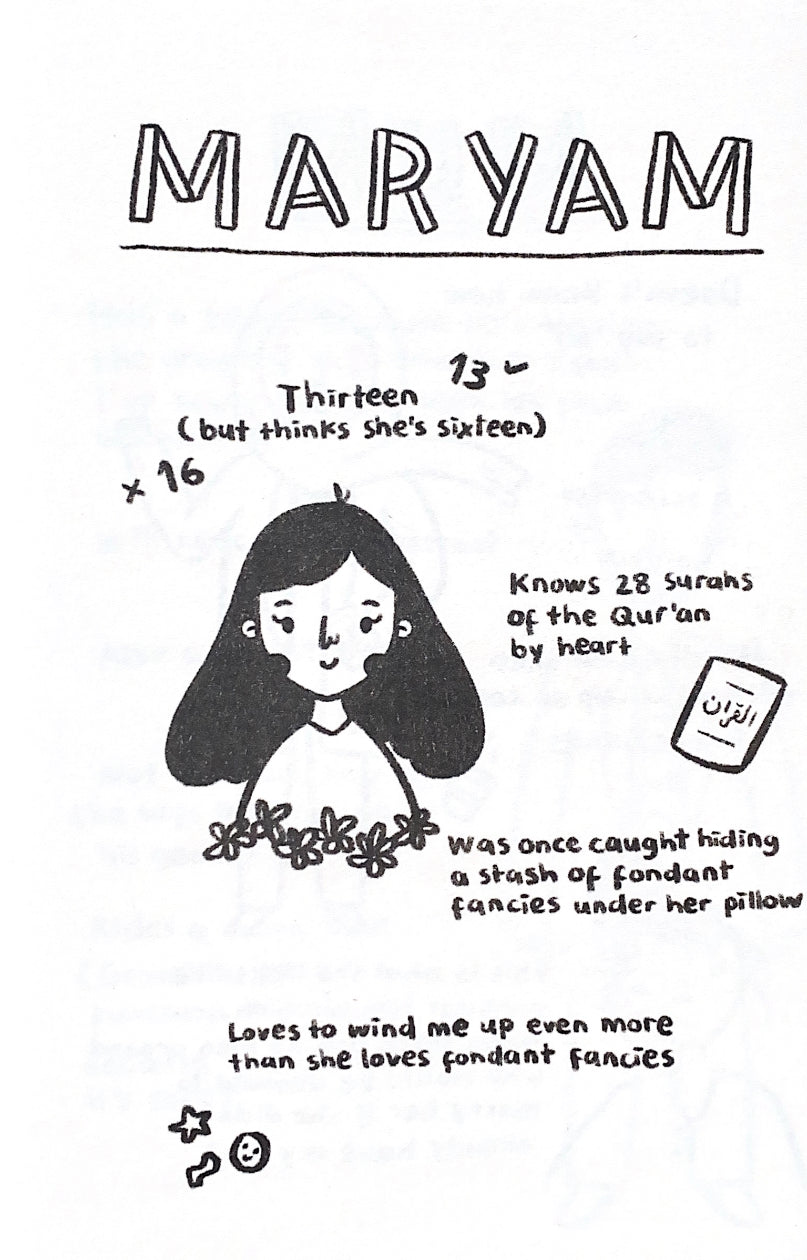 MARYAM
13 ✓
Thirteen
(but thinks she's sixteen)
x 16
Knows 28 surahs
of the Qur'an
by heart
القرآن
Was once caught hiding
a stash of fondant
fancies under her pillow
Loves to wind me up even more
than she loves fondant fancies